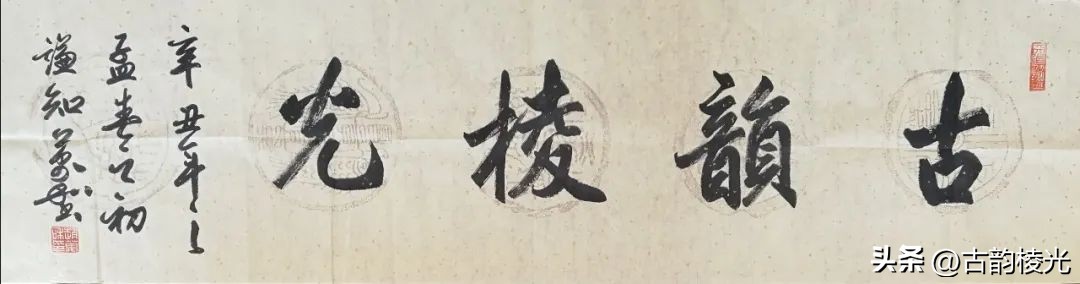 古韻棱光
辛丑年之
孟春之初
谦知
头条 @古韵棱光